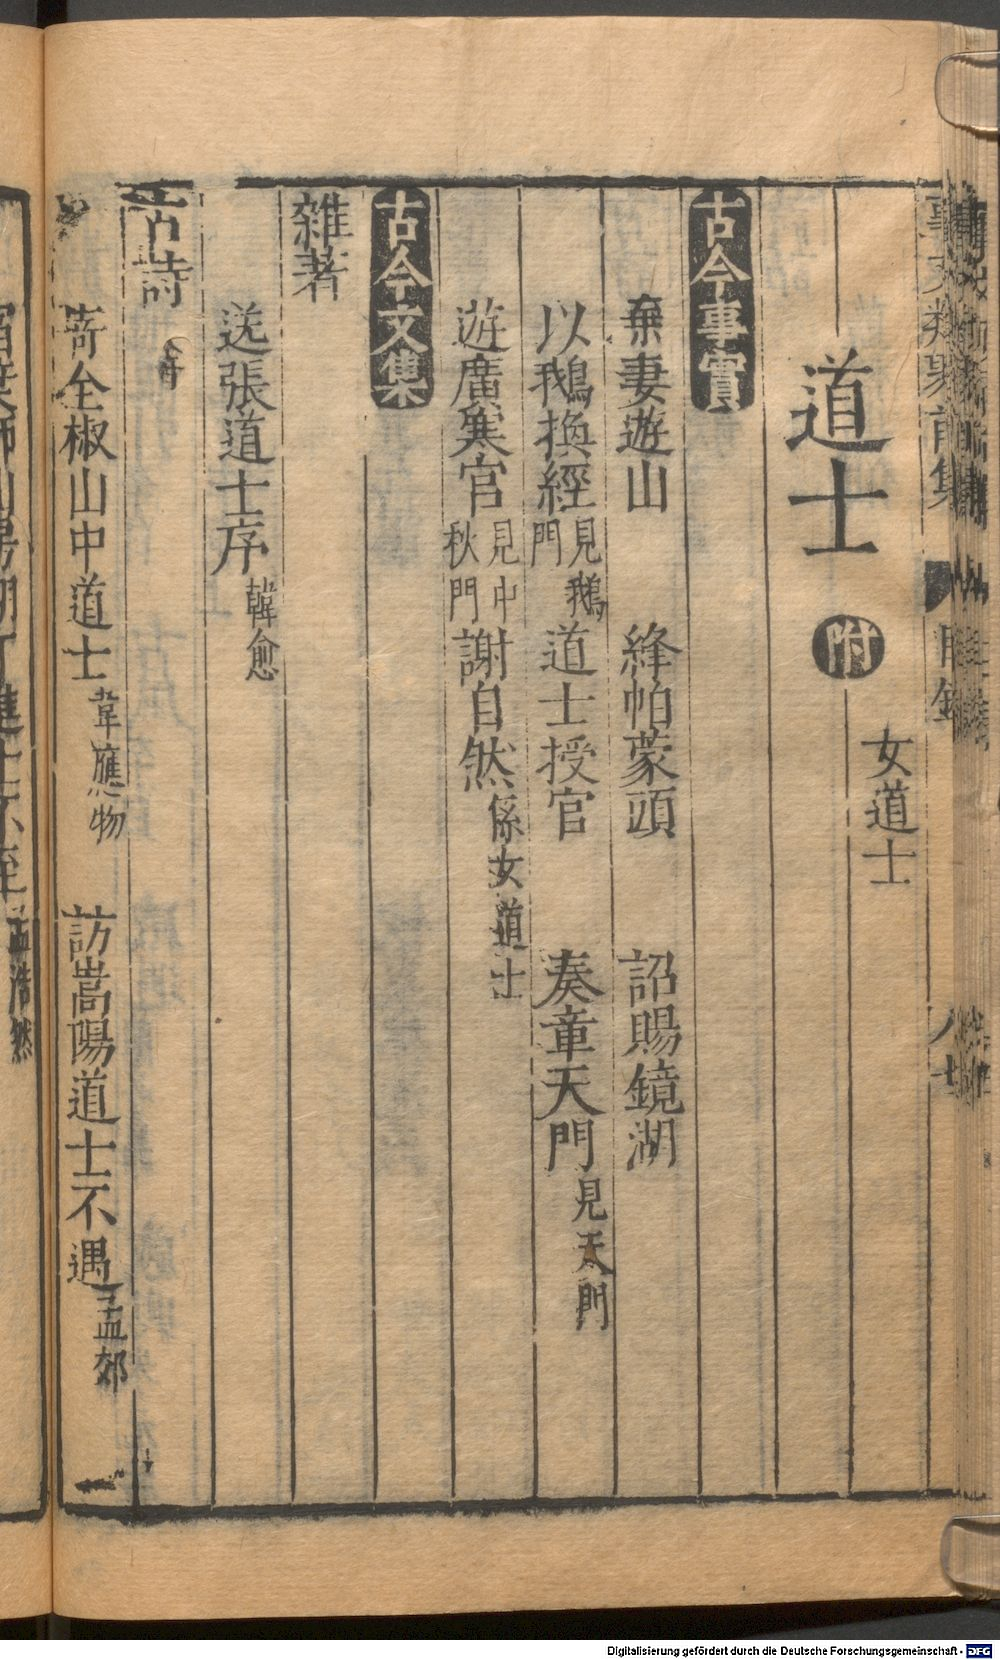 事文類聚前集
目錄
道士 附 女道士
古今事實
棄妻遊山 絳帕蒙頭 詔賜鏡湖
以鵝換經 見鵝門 道士授官 奏章天門 見天門
遊廣寒宮 見中秋門 謝自然 係女道士
古今文集
雜著
送張道士序 韓愈
古詩
寄全椒山中道士 韋應物 訪嵩陽道士不遇 孟郊
孟浩然
Digitalisierung gefördert durch die Deutsche Forschungsgemeinschaft - DFG